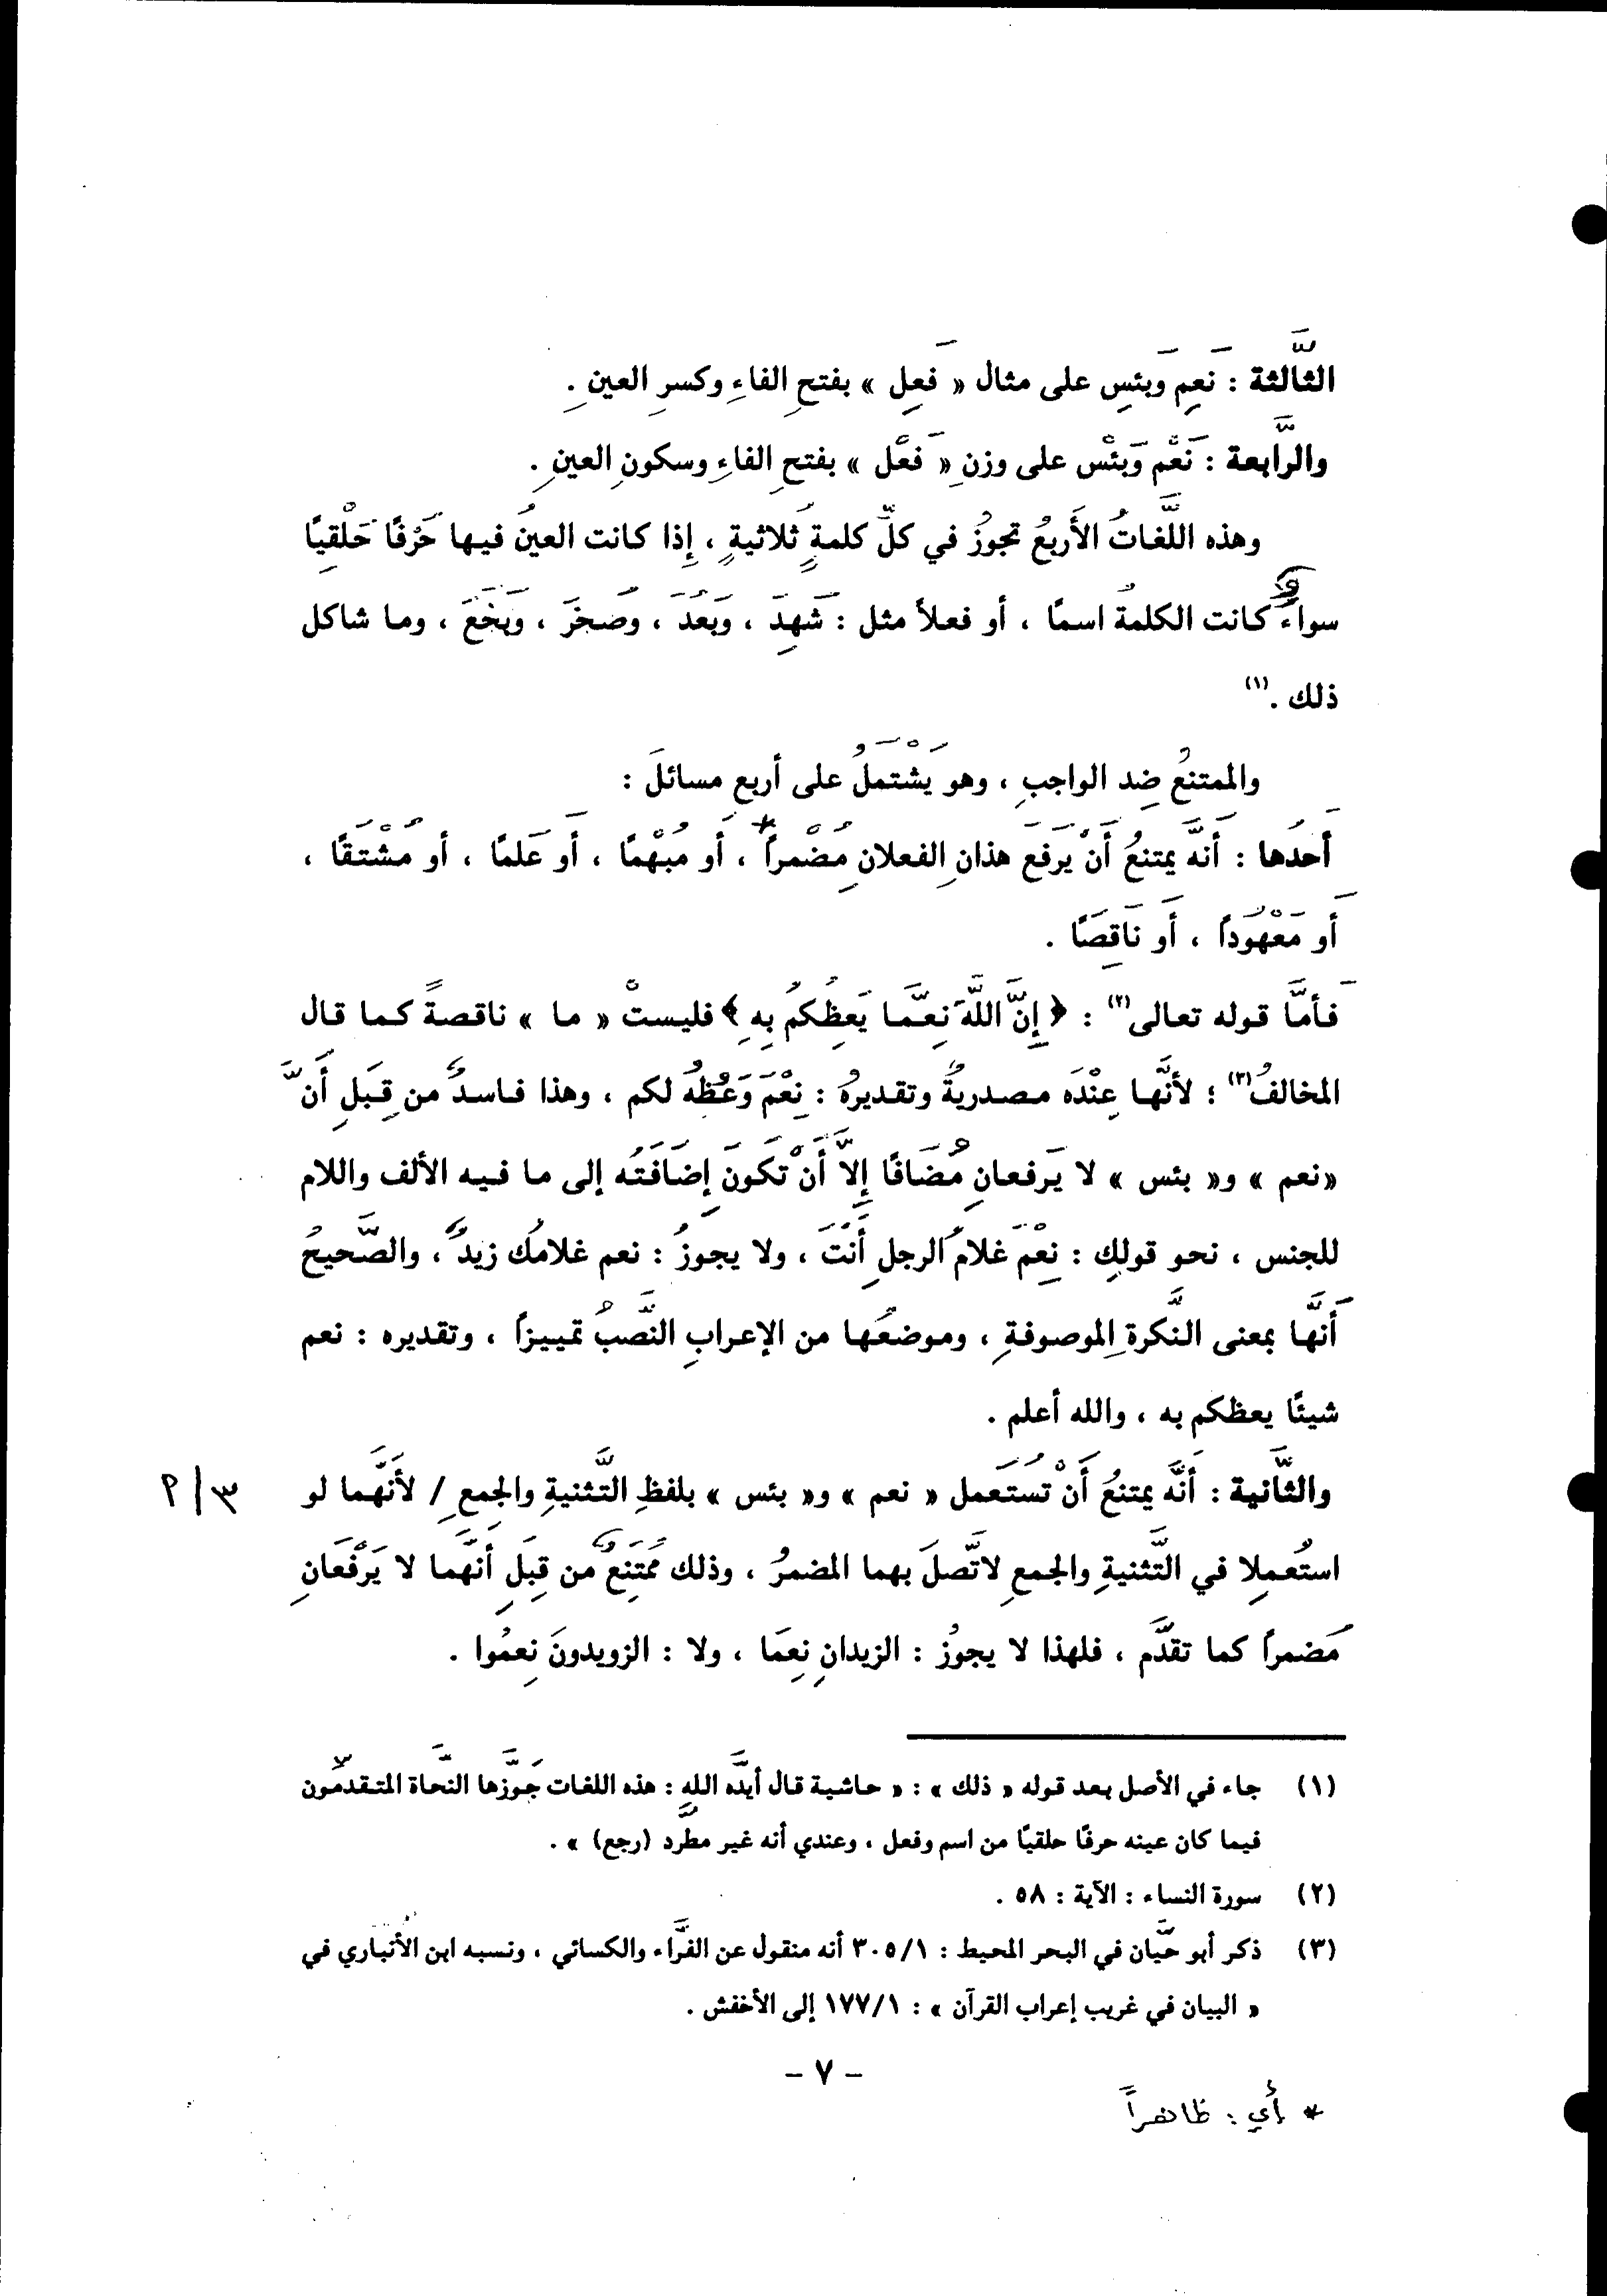 الثَّالثة : نَعِم وَبَئِس على مثال « فَعِل » بفتحِ الفاءِ وكسرِ العينِ .
والرَّابعة : نَعْم وَبَئْس على وزنِ « فَعْل » بفتحِ الفاءِ وسكونِ العينِ .
وهذه اللَّغاتُ الأَربعُ تجوزُ في كلِّ كلمةٍ ثَلاثيةٍ ، إِذا كانت العينُ فيها حَرْفًا حَلْقيًا
سواءٌ كانت الكلمةُ اسمًا ، أو فعلاً مثل : شَهِدَ ، وَبَعُدَ ، وَصَخَرَ ، وَبَخَعَ ، وما شاكل
ذلك .(١)
والممتنعُ ضِد الواجبِ ، وهو يَشْتَملُ على أربعِ مسائلَ :
أَحدُها : أَنَّه يمتنعُ أَنْ يَرفَعَ هذانِ الفعلانِ مُضْمِراً* ، أَو مُبْهمًا ، أَو عَلمًا ، أو مُشْتَقًا ،
أَو مَعْهُوداً ، أَو نَاقِصًا .
فَأمَّا قوله تعالى(٢) : ﴿ إِنَّ اللَّهَ نِعِمَّا يَعِظُكُم بِهِ ﴾ فليستْ « ما » ناقصةً كما قال
المخالفُ(٣) ؛ لأنَّها عِنْدَه مصدريةٌ وتقديرهُ : نِعْمَ وَعْظُهُ لكم ، وهذا فاسدٌ من قِبَلِ أَنَّ
« نعم » و« بئس » لا يَرفعانِ مُضَافًا إِلاَّ أَنْ تكونَ إِضَافَتُه إلى ما فيه الألف واللام
للجنس ، نحو قولِك : نِعْمَ غلامُ الرجلِ أَنْتَ ، ولا يجوزُ : نعم غلامُك زيدٌ ، والصَّحيحُ
أَنَّها بمعنى النَّكرةِ الموصوفةِ ، وموضعُها من الإعرابِ النَّصبُ تمييزاً ، وتقديره : نعم
شيئًا يعظكم به ، والله أعلم .
والثَّانية : أَنَّه يمتنعُ أَنْ تُستَعمل « نعم » و« بئس » بلفظِ التَّثنيةِ والجمعِ / لأَنَّهما لو ٣/٢
استُعملا في التَّثنيةِ والجمعِ لاتَّصلَ بهما المضمرُ ، وذلك مُمْتَنِعٌ من قِبَلِ أَنَّهما لا يَرْفَعَانِ
مُضمراً كما تقدَّم ، فلهذا لا يجوزُ : الزيدانِ نِعمَا ، ولا : الزويدونَ نِعمُوا .
(١) جاء في الأصل بعد قوله « ذلك » : « حاشية قال أيدَّه الله : هذه اللغات جَوَّزها النَّحاة المتقدمُون
فيما كان عينه حرفًا حلقيًا من اسم وفعل ، وعندي أنه غير مطَّرد (رجع) » .
(٢) سورة النساء : الآية : ٥٨ .
(٣) ذكر أبو حيَّان في البحر المحيط : ٣٠٥/١ أنه منقول عن الفرَّاء والكسائي ، ونسبه ابن الأنباري في
« البيان في غريب إعراب القرآن » : ١٧٧/١ إلى الأخفش .
– ٧ –
* أي : ظاهراً